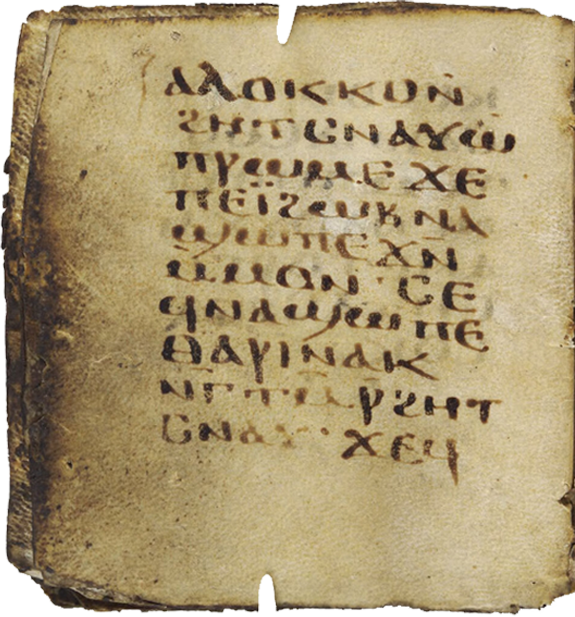 ⲁⲗⲟⲕ ⲕⲟ ⲛ̄
ϩⲏⲧ ⲥⲛⲁⲩ ⲱ̄
ⲡⲣⲱⲙⲉ ϫⲉ
ⲡⲉⲓ̈ϩⲱⲃ ⲛⲁ
ϣⲱⲡⲉ ϫⲛ̄
ⲙⲙⲟⲛ ⲥⲉ
ϥⲛⲁϣⲱⲡⲉ
ⲑⲁⲣⲓ ⲛⲁⲕ
ⲛⲅ̄ⲧⲙ̄ⲣ̄ϩⲏⲧ
ⲥⲛⲁⲩ ϫⲉϥ